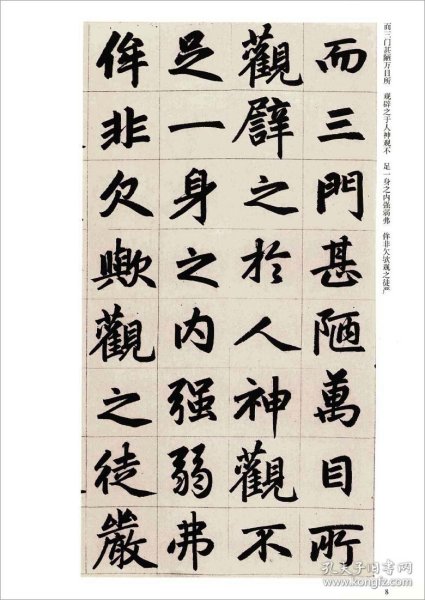 而三门甚陋万目所　观辟之于人神观不　足一身之内强弱弗　侔非欠欤观之徒严
而三門甚陋萬目所
觀譬之於人神觀不
足一身之內强弱弗
侔非欠歟觀之徒嚴
孔夫子旧书网
www.kongfz.com
8